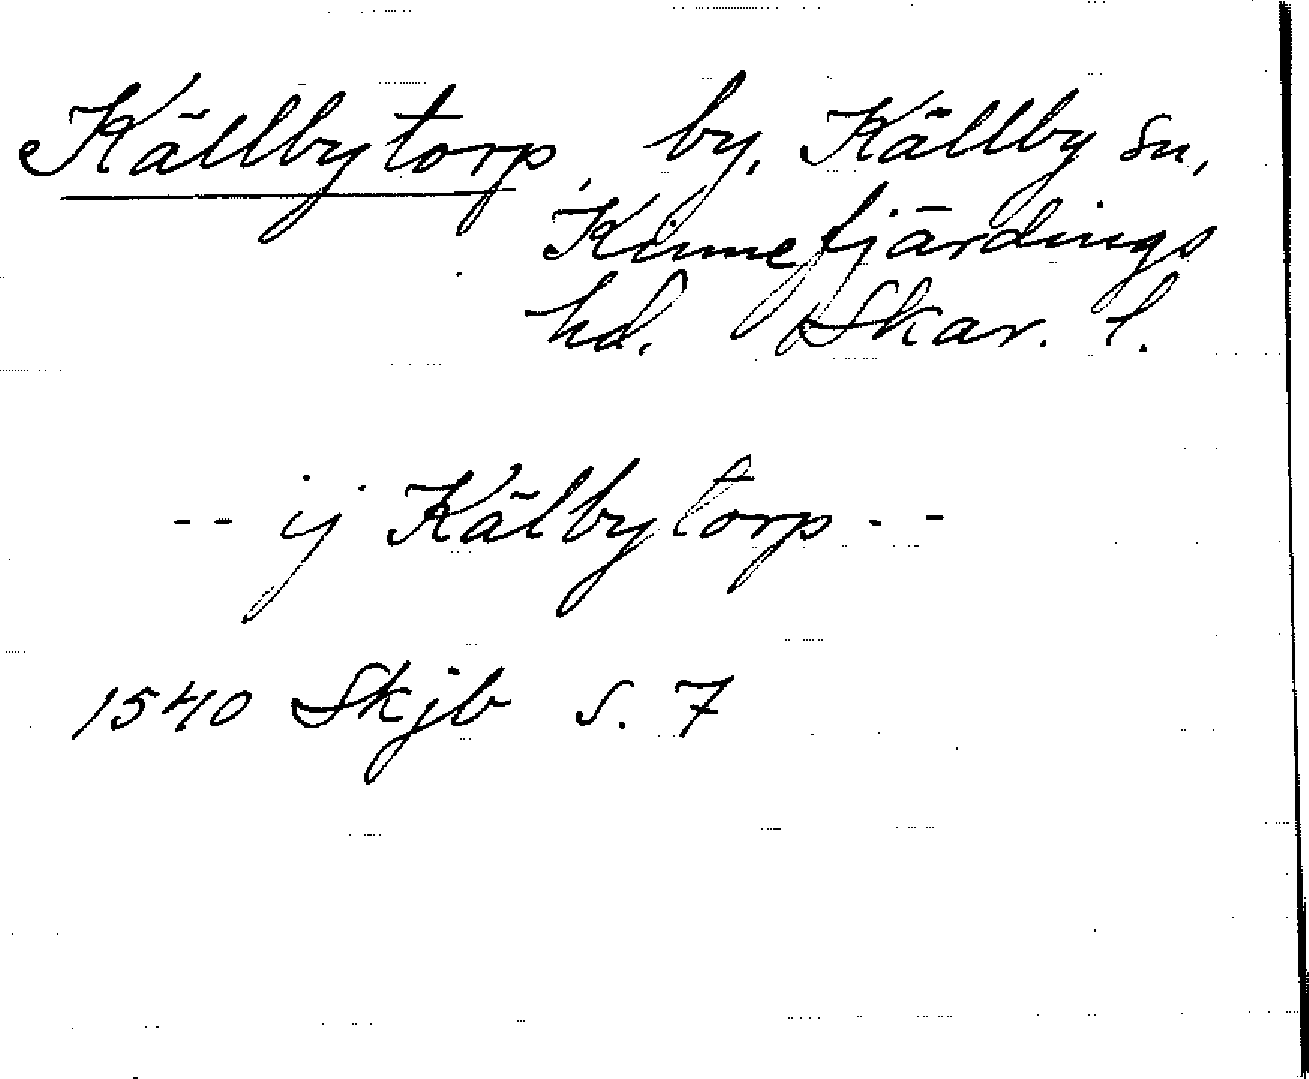 Källbytorp, by, Källby sn,
Kinnefjärdings
hd. Skar. l.
-- ij Kälbytorp --
1540 Skjb s. 7